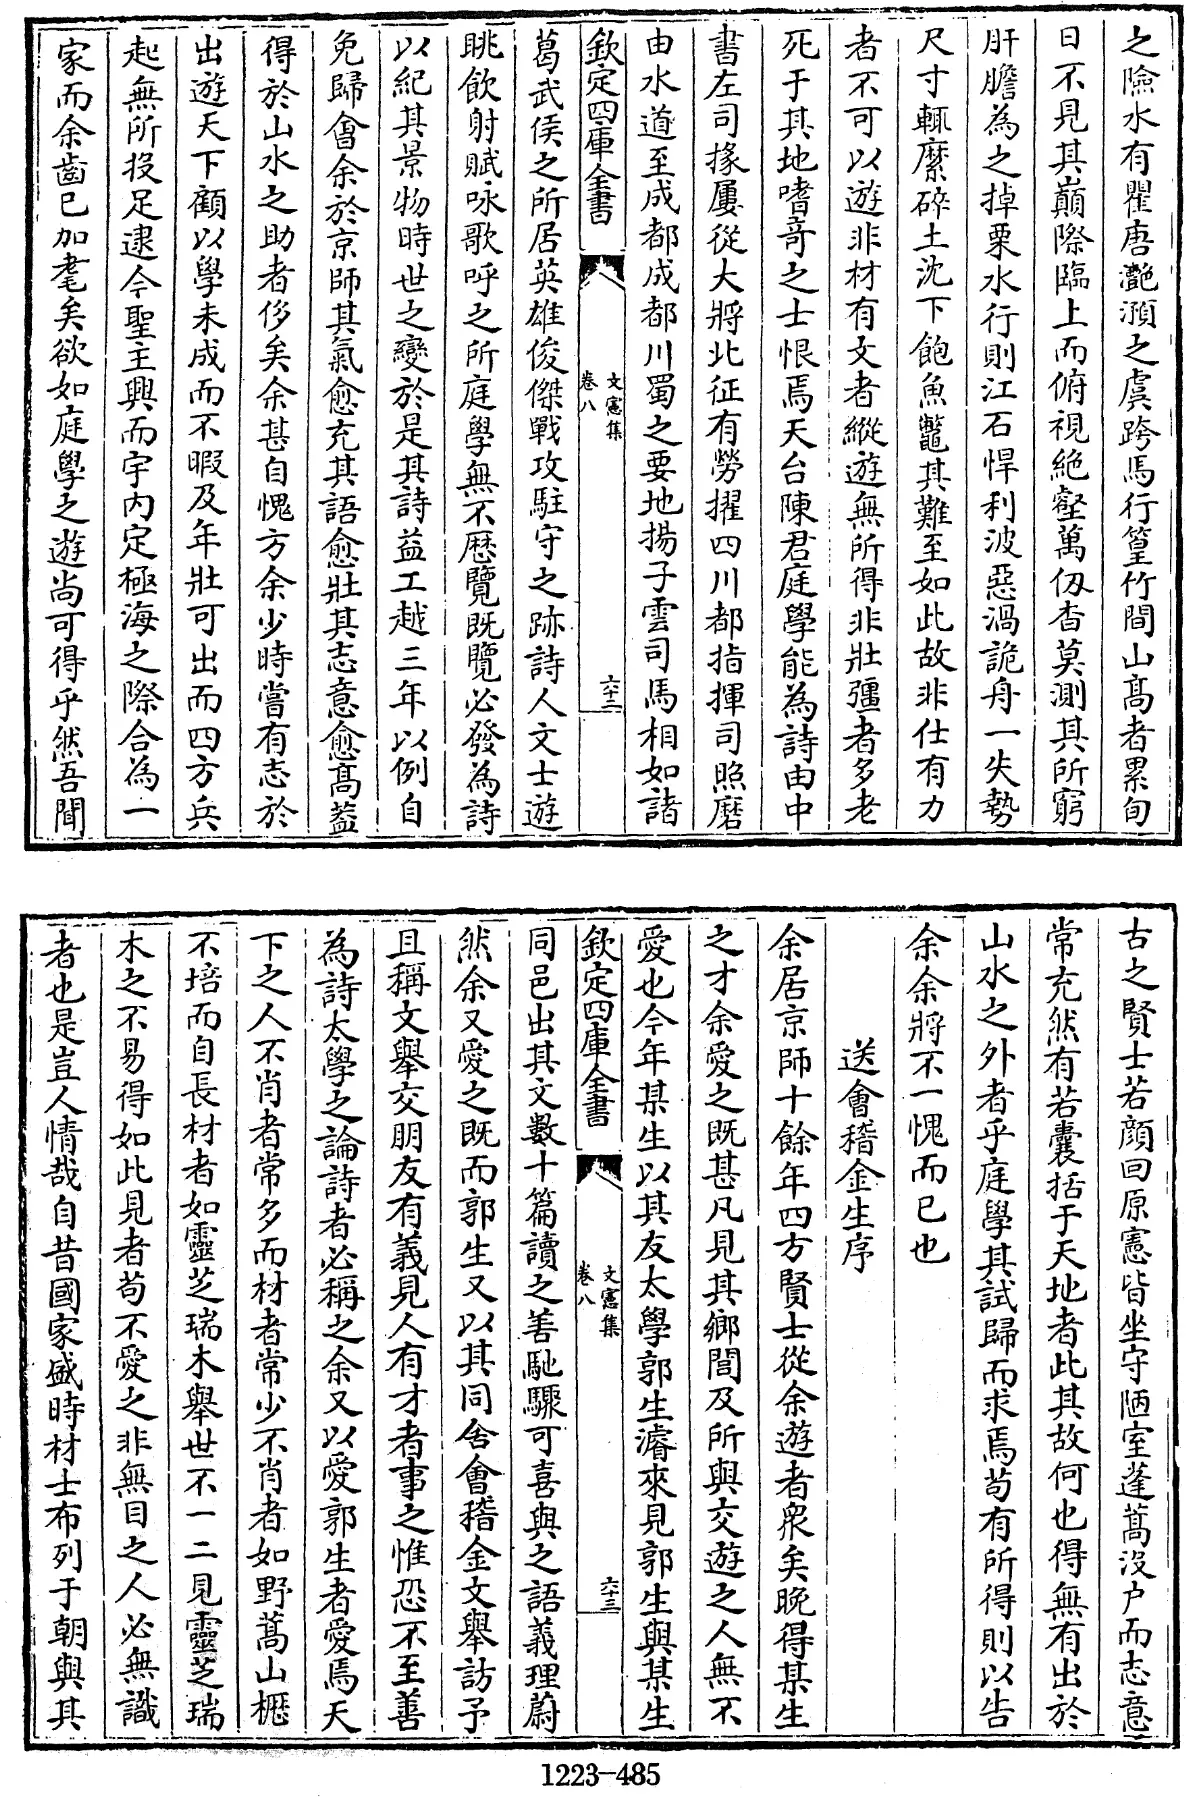 之險水有瞿唐灔澦之虞跨馬行篁竹間山髙者累旬
日不見其巔際臨上而俯視絶壑萬仭杳莫測其所窮
肝膽為之掉栗水行則江石悍利波惡渦詭舟一失勢
尺寸輒糜碎土沈下飽魚鼈其難至如此故非仕有力
者不可以遊非材有文者縱遊無所得非壯彊者多老
死于其地嗜竒之士恨焉天台陳君庭學能為詩由中
書左司掾屢從大將北征有勞擢四川都指揮司照磨
由水道至成都成都川蜀之要地揚子雲司馬相如諸
欽定四庫全書
文憲集
卷八
六十三
葛武侯之所居英雄俊傑戰攻駐守之跡詩人文士遊
眺飲射賦咏歌呼之所庭學無不厯覽既覽必發為詩
以紀其景物時世之變於是其詩益工越三年以例自
免歸會余於京師其氣愈充其語愈壯其志意愈髙葢
得於山水之助者侈矣余甚自愧方余少時嘗有志於
出遊天下顧以學未成而不暇及年壯可出而四方兵
起無所投足逮今聖主興而宇内定極海之際合為一
家而余齒已加耄矣欲如庭學之遊尚可得乎然吾聞
古之賢士若顔回原憲皆坐守陋室蓬蒿没户而志意
常充然有若囊括于天地者此其故何也得無有出於
山水之外者乎庭學其試歸而求焉茍有所得則以告
余余將不一愧而已也
送會稽金生序
余居京師十餘年四方賢士從余遊者衆矣晩得某生
之才余愛之既甚凡見其鄉閭及所與交遊之人無不
愛也今年某生以其友太學郭生濬來見郭生與某生
欽定四庫全書
文憲集
卷八
六十三
同邑出其文數十篇讀之善馳驟可喜與之語義理蔚
然余又愛之既而郭生又以其同舍會稽金文舉訪予
且稱文舉交朋友有義見人有才者事之惟恐不至善
為詩太學之論詩者必稱之余又以愛郭生者愛焉天
下之人不肖者常多而材者常少不肖者如野蒿山櫪
不培而自長材者如靈芝瑞木舉世不一二見靈芝瑞
木之不易得如此見者茍不愛之非無目之人必無識
者也是豈人情哉自昔國家盛時材士布列于朝與其
1223-485